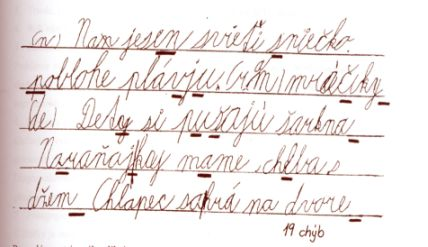 (n) Nam jesen svieti sniečko.
noblohe plávju. (rôm) mráčiky
(de) Dety si pušajú šarkna
Naraňajkaj mame chleba s
džem Chlapec sahrá na dvore
19 chýb